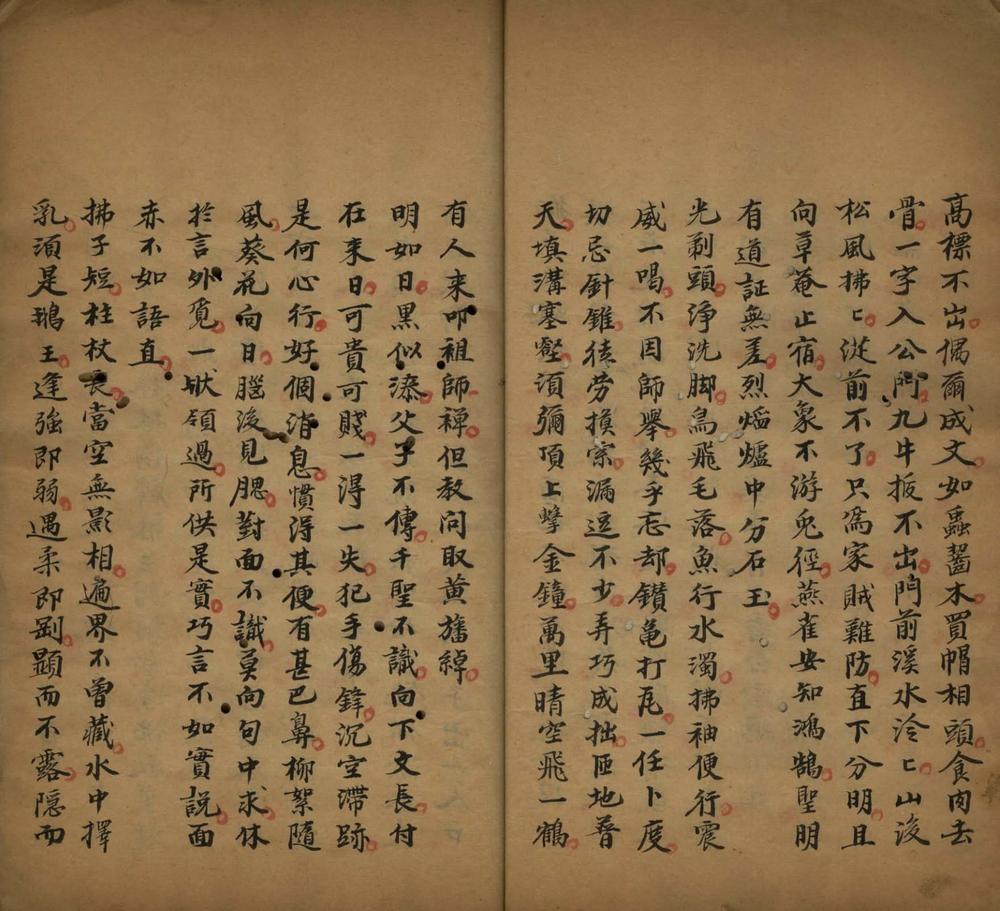 高標不出偶爾成文如蟲蠹木買帽相頭食肉去
骨一字入公門九牛扳不出門前溪水泠〻山後
松風拂〻從前不了只為家賊難防直下分明且
向草菴止宿大象不游兎徑燕雀安知鴻鵠聖明
有道証無差烈熖爐中分石玉
光剃頭淨洗脚鳥飛毛落魚行水濁拂袖便行震
威一喝不因師舉幾乎忘却鑽龜打瓦一任卜度
切忌針錐徒劳摸宗漏逗不少弄巧成拙匝地普
天填溝塞壑須彌頂上擊金鐘萬里晴空飛一鶴
有人来叩祖師禅但教问取黄旛綽
明如日黒似漆父子不傳千聖不識向下文長付
在来日可貴可賤一得一失犯手傷鋒沉空滯跡
是何心行好個消息慣得其便有甚巴鼻柳絮隨
風葵花向日腦後見腮對面不識莫向句中求休
扵言外覓一狀領過所供是實巧言不如實說面
赤不如語直
拂子短柱杖長當空無影相遍界不曾藏水中擇
乳須是鵝王逢強即弱遇柔即剛顕而不露隠而